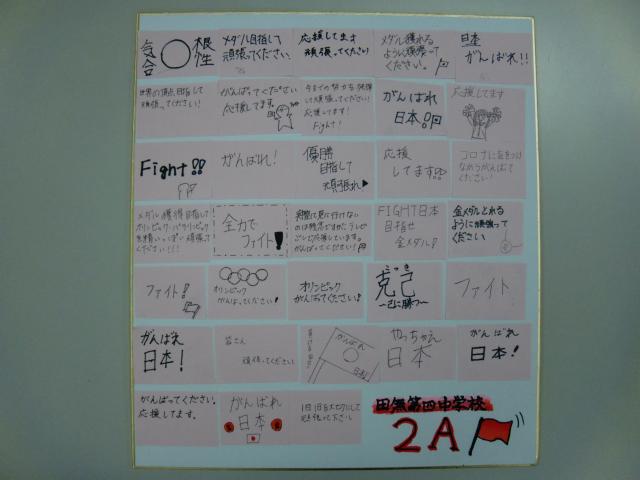 気合 ○ 根性
メダル目指して
頑張ってください。
応援してます
頑張ってください
メダル獲れる
ように頑張って
ください。
日本
がんばれ!!
世界の頂点目指して
頑張ってください!
がんばってください
応援してます。
頑張ってください!
応援してます!
Fight!
がんばれ
日本!!
応援してます
Fight!!
がんばれ!
優勝
目指して
頑張れ
応援
してます!!
コロナに気をつけ
ながらがんばて
ください!
メダル獲得目指して
オリンピック・パラリンピック
頑張って
ください!!!
全力で
ファイト!
実際に見に行けない
のは残念ですがテレビ
ごしで応援しています。
がんばって下さい!
FIGHT日本
目指せ
金メダル!
金メダルとれる
ように頑張って
ください
ファイト!
オリンピック
がんばってください!
オリンピック
がんばってください!
こっき
克己
〜己に勝つ〜
ファイト
がんばれ
日本!
皆さん
頑張ってください
がんばれ
日本
やっちゃえ
日本
がんばれ
日本!
がんばってください。
応援してます。
がんばれ
日本
1日1日を大切にして
頑張って下さい
田無第四中学校
2A